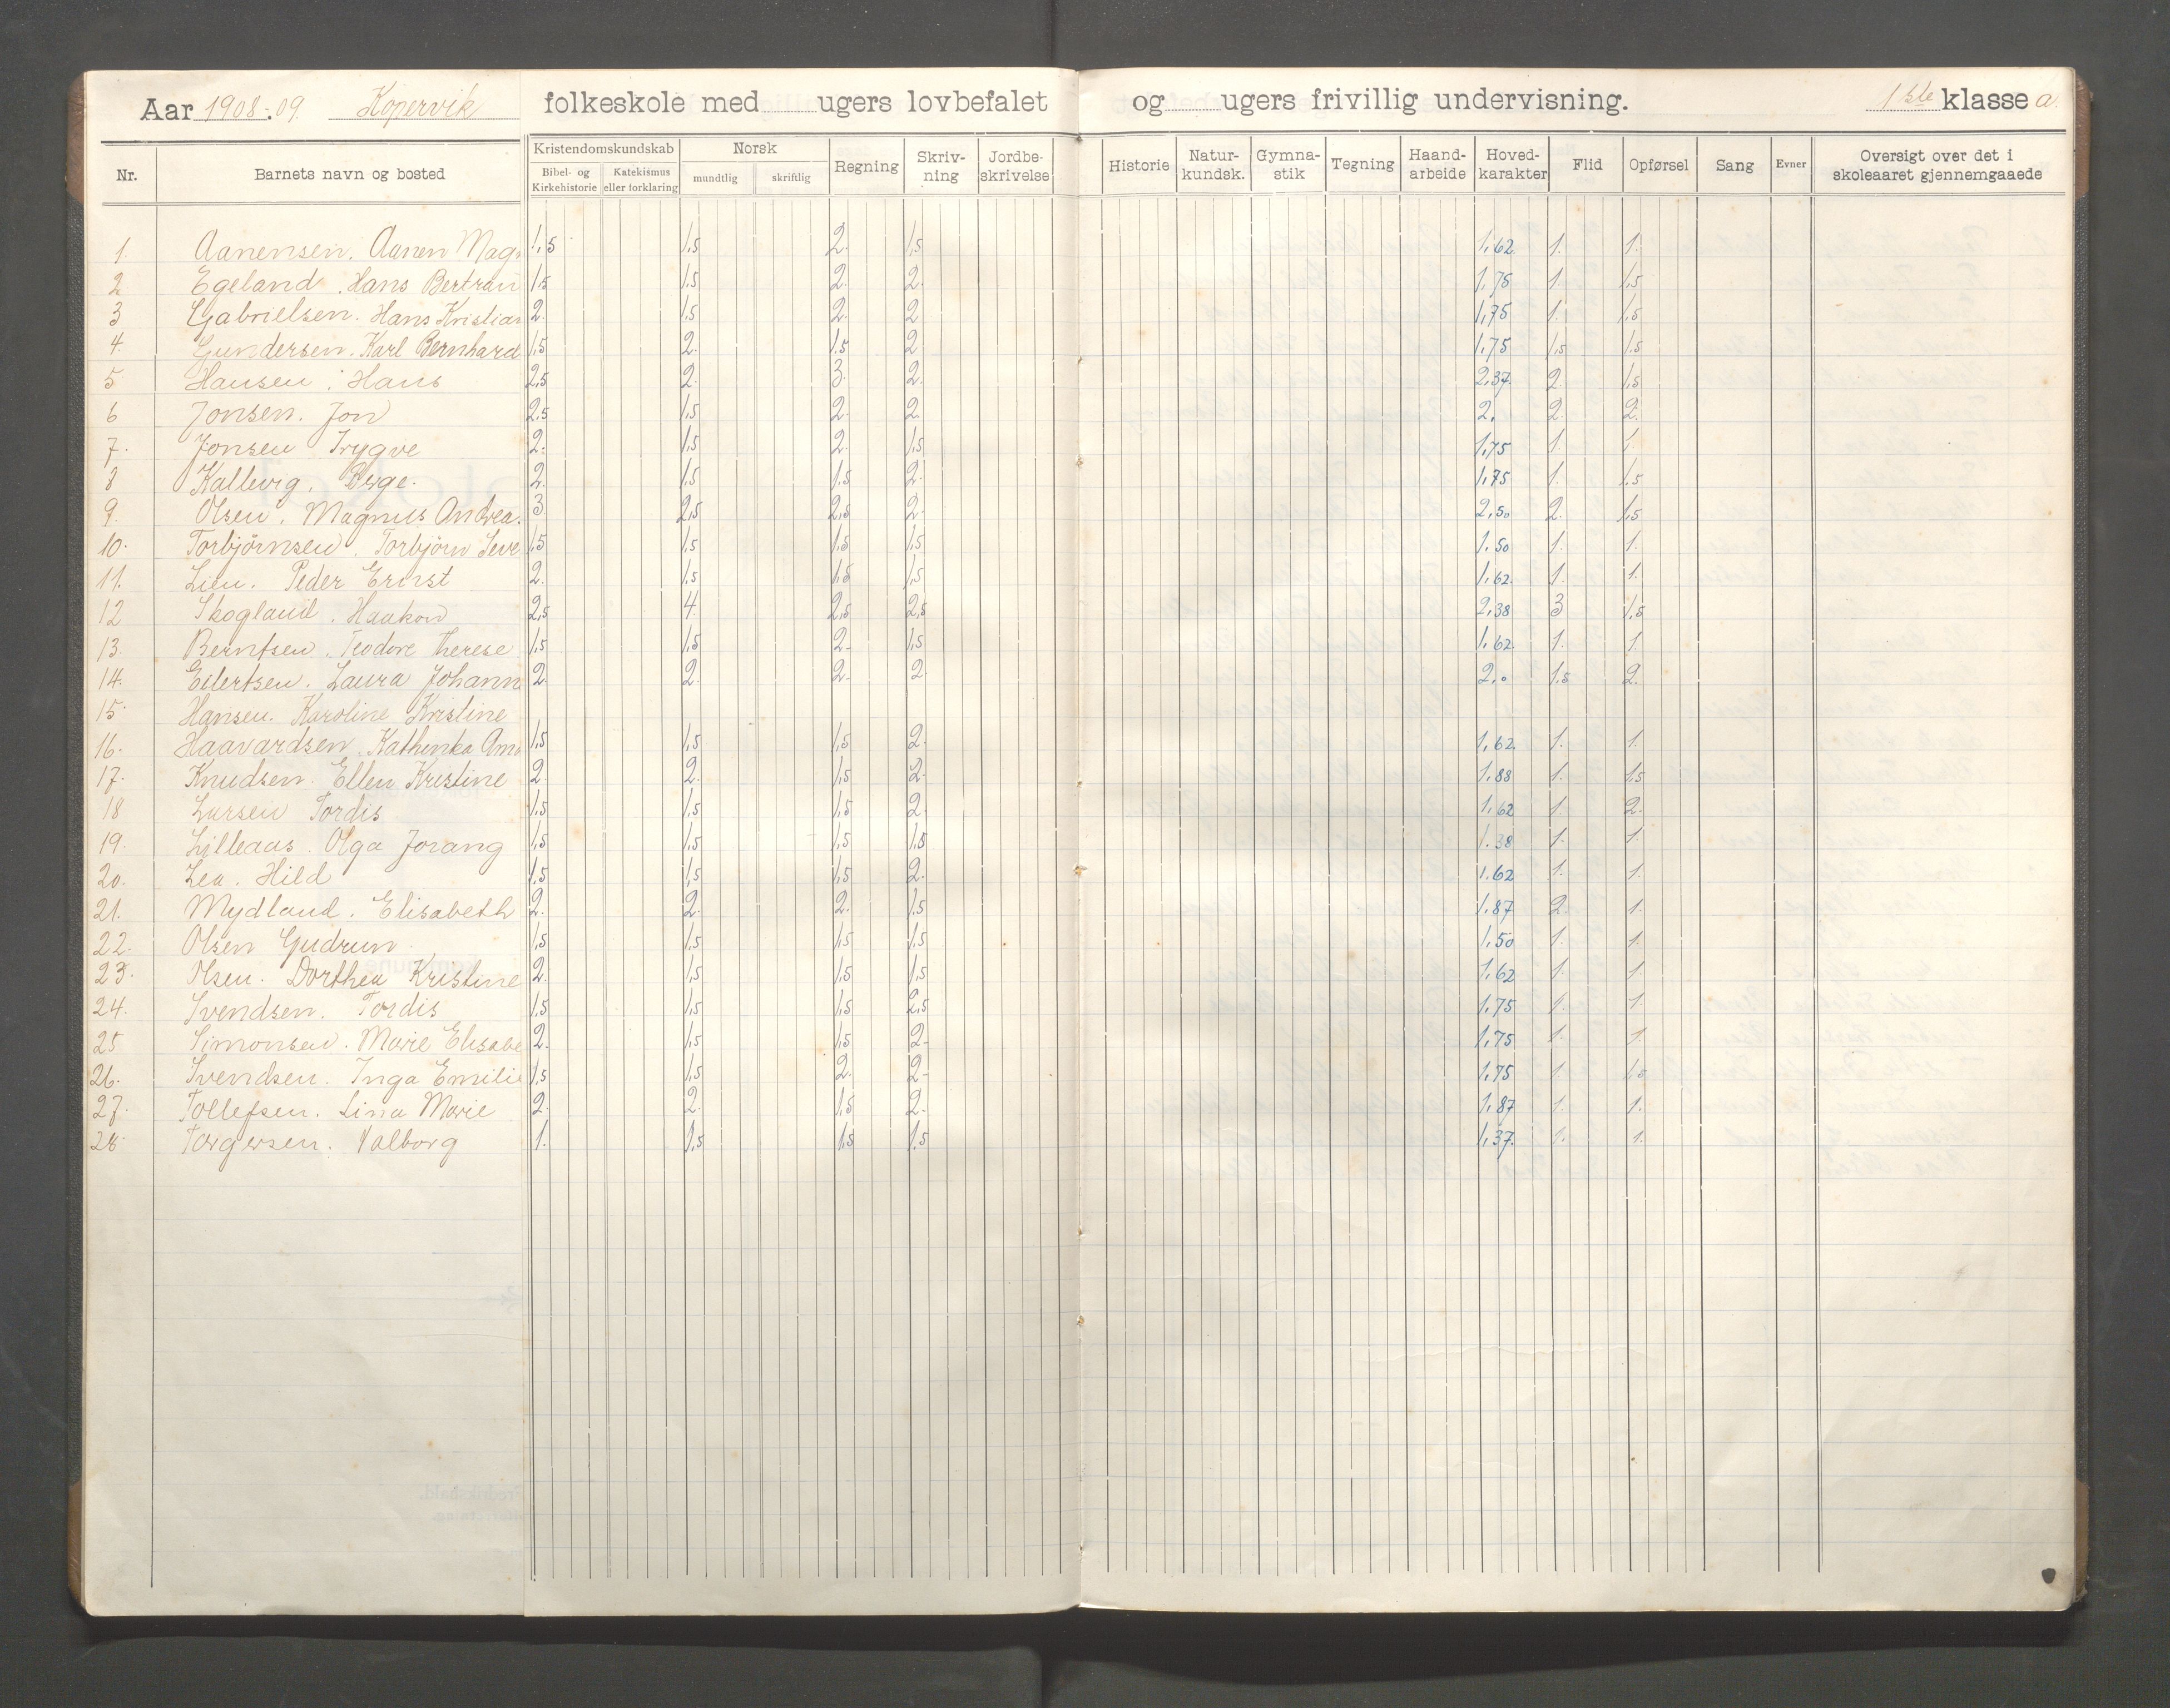 Aar 1908-09. Kopervik folkeskole med ugers lovbefalet og ugers frivillig undervisning. 1ste klasse a.
Nr. Barnets navn og bosted Kristendomskundskab Bibel- og Kirkehistorie Katekismus eller forklaring Norsk mundtlig skriftlig Regning Skriv-ning Jordbe-skrivelse Historie Natur-kundsk. Gymna-stik Tegning Haand-arbeide Hoved-karakter Flid Opførsel Sang Evner Oversigt over det i skoleaaret gjennemgaaede
1. Aanensen. Aanen Mag 1,5 1,5 2. 1,5 1,62. 1. 1.
2 Egeland. Hans Bertran 1,5 1,5 2. 2. 1,75 1. 1,5
3 Gabrielsen. Hans Kristian 2. 1,5 2. 2 1,75 1. 1,5
4. Gundersen. Karl Bernhard 1,5 2. 1,5 2 1,75 1,5 1,5
5 Hansen, Hans 2,5 2. 3. 2. 2,37. 2. 1,5
6 Jonsen. Jon 2,5 1,5 2. 2. 2. 2. 2.
7. Jonsen Trygve 2. 1,5 2. 1,5 1,75 1. 1.
8 Kallevig. Børge. 2. 1,5 1,5 2. 1,75 1. 1,5
9. Olsen. Magnus Andrea 3. 2,5 2,5 2. 2,50 2. 1,5
10. Torbjörnsen. Torbjörn Seve 1,5 1,5 1,5 1,5 1.50 1. 1.
11. Lien. Peder Ernst 2. 1,5 1,5 1,5 1,62. 1. 1.
12 Skogland. Haakon 2,5 4. 2,5 2,5 2,38 3 1,5
13. Berntsen. Teodore Therese 1,5 1,5 2. 1,5 1,62. 1. 1.
14. Eilertsen. Laura Johann 2. 2. 2. 2. 2,0 1,5 2.
15. Hansen. Karoline Kristine
16. Haavardsen. Kathinka Am 1,5 1,5 1,5 2. 1,62. 1. 1.
17. Knudsen. Ellen Kristine 2. 2. 1,5 2. 1,88 1. 1,5
18 Larsen Tordis 1,5 1,5 1,5 2. 1,62 1. 2.
19. Lilleaas. Olga Jorang 1,5 1,5 1,5 1,5 1.38 1. 1.
20. Lea. Hild 1,5 1,5 1,5 2. 1.62 1. 1.
21. Mydland. Elisabeth 2. 2. 2. 1,5 1.87 2. 1.
22. Olsen Gudrun. 1,5 1,5 1,5 1,5 1.50 1. 1.
23. Olsen. Dorthea Kristine 2. 1,5 1,5 1,5 1.62 1. 1.
24. Svendsen. Tordis 1,5 1,5 1,5 2,5 1.75 1. 1.
25 Simonsen. Marie Elisabe 2. 1,5 1,5 2. 1.75 1. 1.
26. Svendsen. Inga Emilie 1,5 1,5 2. 2. 1.75 1 1,5
27. Tollefsen. Lina Marie 2. 2. 1,5 2. 1.87 1. 1.
28 Torgersen. Valborg 1. 1,5 1,5 1,5 1,37. 1. 1.